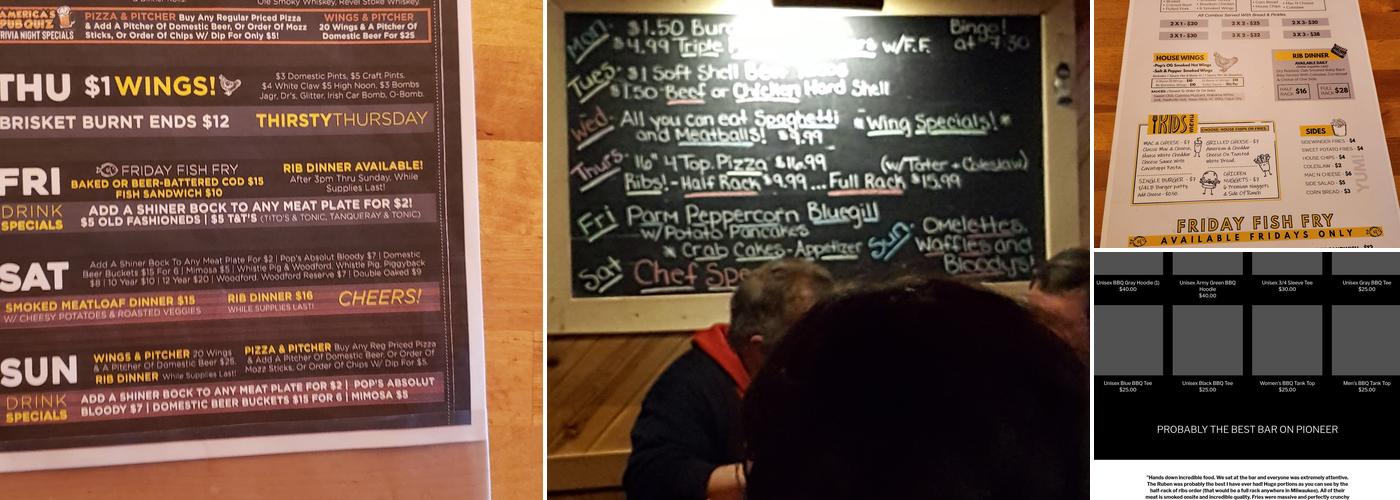 AMERICA'S
PUB QUIZ
TRIVIA NIGHT SPECIALS
PIZZA & PITCHER Buy Any Regular Priced Pizza
& Add A Pitcher Of Domestic Beer, Or Order Of Mozz
Sticks, Or Order Of Chips W/ Dip For Only $5!
WINGS & PITCHER
20 Wings & A Pitcher Of
Domestic Beer For $25
THU $1 WINGS!
$3 Domestic Pints, $5 Craft Pints,
$4 White Claw $5 High Noon, $3 Bombs
Jagr, Dr's, Glitter, Irish Car Bomb, O-Bomb.
BRISKET BURNT ENDS $12
THIRSTYTHURSDAY
FRI
FRIDAY FISH FRY
BAKED OR BEER-BATTERED COD $15
FISH SANDWICH $10
RIB DINNER AVAILABLE!
After 3pm Thru Sunday, While
Supplies Last!
DRINK
SPECIALS
ADD A SHINER BOCK TO ANY MEAT PLATE FOR $2!
$5 OLD FASHIONEDS | $5 T&T'S (TITO'S & TONIC, TANQUERAY & TONIC)
SAT
Add A Shiner Bock To Any Meat Plate For $2 | Pop's Absolut Bloody $7 | Domestic
Beer Buckets $15 For 6 | Mimosa $5 | Whistle Pig & Woodford, Whistle Pig, Piggyback
$8 | 10 Year $10 | 12 Year $20 | Woodford, Woodford Reserve $7 | Double Oaked $9
SMOKED MEATLOAF DINNER $15
W/ CHEESY POTATOES & ROASTED VEGGIES
RIB DINNER $16
WHILE SUPPLIES LAST!
CHEERS!
SUN
WINGS & PITCHER 20 Wings
& A Pitcher Of Domestic Beer $25.
RIB DINNER While Supplies Last!
PIZZA & PITCHER Buy Any Reg Priced Pizza
& Add A Pitcher Of Domestic Beer, Or Order Of
Mozz Sticks, Or Order Of Chips W/ Dip For $5.
DRINK
SPECIALS
ADD A SHINER BOCK TO ANY MEAT PLATE FOR $2 | POP'S ABSOLUT
BLOODY $7 | DOMESTIC BEER BUCKETS $15 FOR 6 | MIMOSA $5
Mon
$1.50
$4.99 Triple w/F.F.
Bingo!
at 7:30
Tues
$1 Soft Shell
1.50 Beef or Chicken Hard Shell
Wed.
All you can eat Spaghetti
and Meatballs! $9.99
*Wing Specials!*
Thurs.
16" 4 Top. Pizza $16.99
(w/Tater + Coleslaw)
Ribs! - Half Rack $9.99... Full Rack $15.99
Fri
Parm Peppercorn Bluegill
w/Potato Pancakes
* Crab Cakes - Appetizer
Sun
Omelettes
Waffles and
Bloodys!
Sat
Chef Spe
All Combos Served With Bread & Pickles
2 X 1 - $20
2 X 2 - $25
2 X 3- $30
3 X 1 - $30
3 X 2 - $32
3 X 3 - $38
HOUSE WINGS
RIB DINNER
AVAILABLE DAILY
HALF RACK $16
FULL RACK $28
KIDS MENU
CHOOSE: HOUSE CHIPS OR FRIES
MAC & CHEESE - $7
GRILLED CHEESE - $7
SINGLE BURGER - $7
CHICKEN
NUGGETS - $7
SIDES
SIDEWINDER FRIES - $4
SWEET POTATO FRIES - $4
HOUSE CHIPS - $4
COLESLAW - $2
MAC N CHEESE - $6
SIDE SALAD - $5
CORN BREAD - $3
YUM!
FRIDAY FISH FRY
AVAILABLE FRIDAYS ONLY
Unisex BBQ Gray Hoodie (1)
$40.00
Unisex Army Green BBQ
Hoodie
$40.00
Unisex 3/4 Sleeve Tee
$30.00
Unisex Gray BBQ Tee
$25.00
Unisex Blue BBQ Tee
$25.00
Unisex Black BBQ Tee
$25.00
Women's BBQ Tank Top
$25.00
Men's BBQ Tank Top
$25.00
PROBABLY THE BEST BAR ON PIONEER
"Hands down incredible food. We sat at the bar and everyone was extremely attentive.
The Ruben was probably the best I have ever had! Huge portions as you can see by the
half-rack of ribs order (that would be a full rack anywhere in Milwaukee). All of their
meat is smoked onsite and incredible quality. Fries were massive and perfectly crunchy